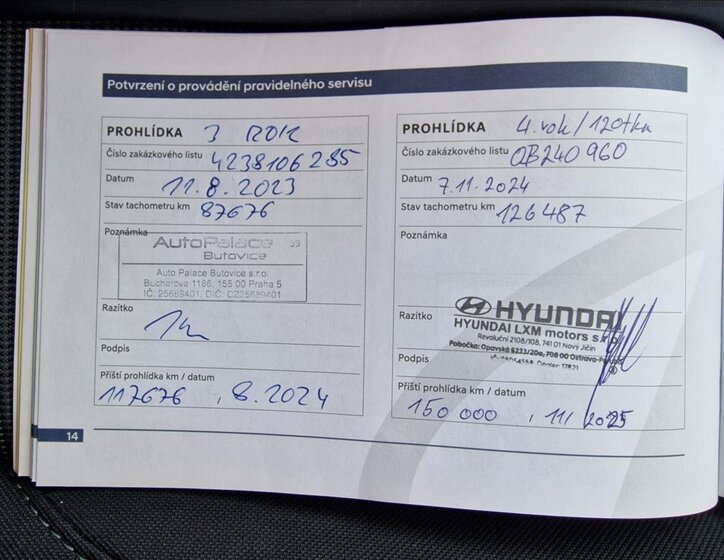 Potvrzení o provádění pravidelného servisu
PROHLÍDKA 3 ROK
Číslo zakázkového listu 4238106285
Datum 11.8.2023
Stav tachometru km 87676
Poznámka
AutoPalace 39
Butovice
Auto Palace Butovice s.r.o.
Bucharova 1186, 155 00 Praha 5
IČ: 25689401, DIČ: CZ25689401
Razítko
Podpis
Příští prohlídka km / datum
117676 , 8.2024
PROHLÍDKA 4. rok / 120tkm
Číslo zakázkového listu OB240960
Datum 7.11.2024
Stav tachometru km 126487
Poznámka
HYUNDAI
Razítko
HYUNDAI LXM motors s.r.o.
Revoluční 2108/108, 741 01 Nový Jičín
Pobočka: Opavská 6233/20a, 708 00 Ostrava
Podpis
Příští prohlídka km / datum
150 000 , 11/2025
14